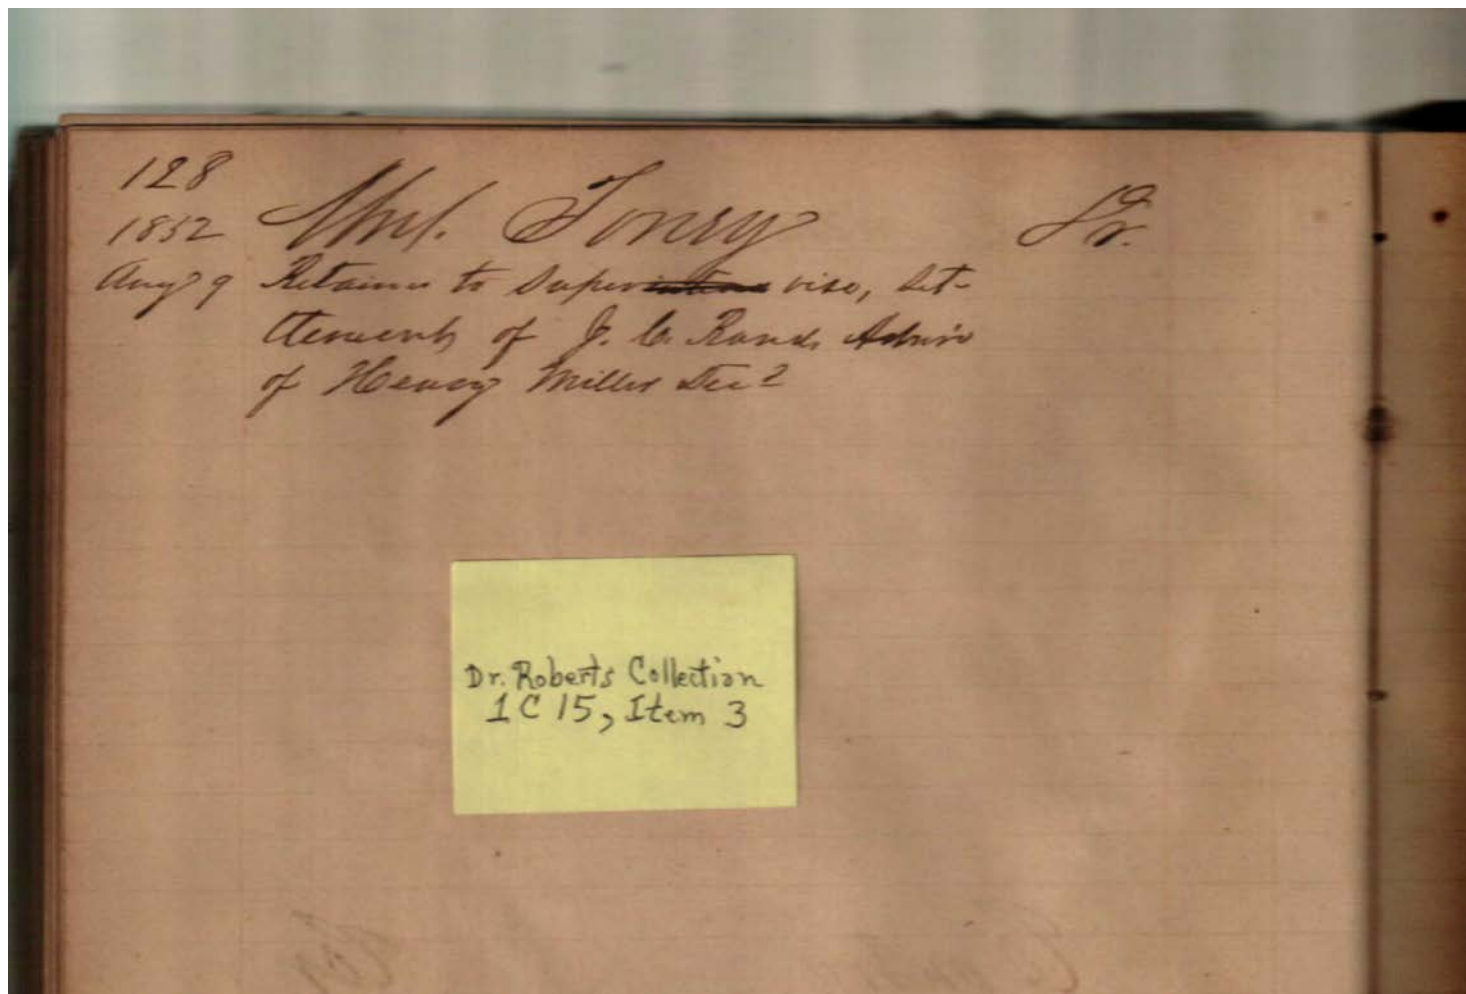 128
1852 Tonsy Dr.
Aug 9 Retainer to Super vise, Set-
tlement of J. C. Rands Admir
of Henry Miller Decd
Dr. Roberts Collection
1 C 15, Item 3